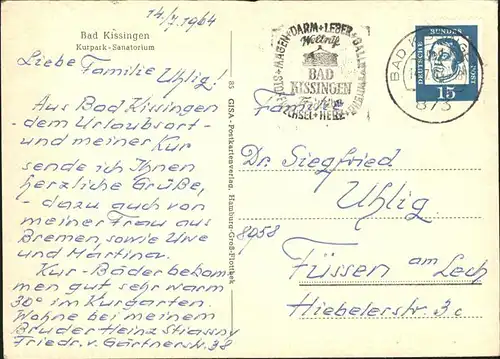 14/7. 1964
Bad Kissingen
Kurpark-Sanatorium
Liebe
Familie Uhlig!
Aus Bad Kissingen
- dem Urlaubsort -
und meiner Kur
sende ich Ihnen
herzliche Grüße,
- dazu auch von
meiner Frau aus
Bremen, sowie Uwe
und Martina.
Kur-Bäder bekom
men gut sehr warm
30° im Kurgarten.
Wohne bei meinem
Bruder Heinz Stiassny
Friedr. v. Gärtnerstr. 38
85 GISA-Postkartenverlag, Hamburg-Groß-Flottbek
MAGEN + DARM + LEBER + GALLE
Weltruf
BAD
KISSINGEN
HERZ
BAD KISSINGEN
873
DEUTSCHE BUNDESPOST
15
Familie
Dr. Siegfried
Uhlig
8958
Füssen am Lech
Hiebelerstr. 3c